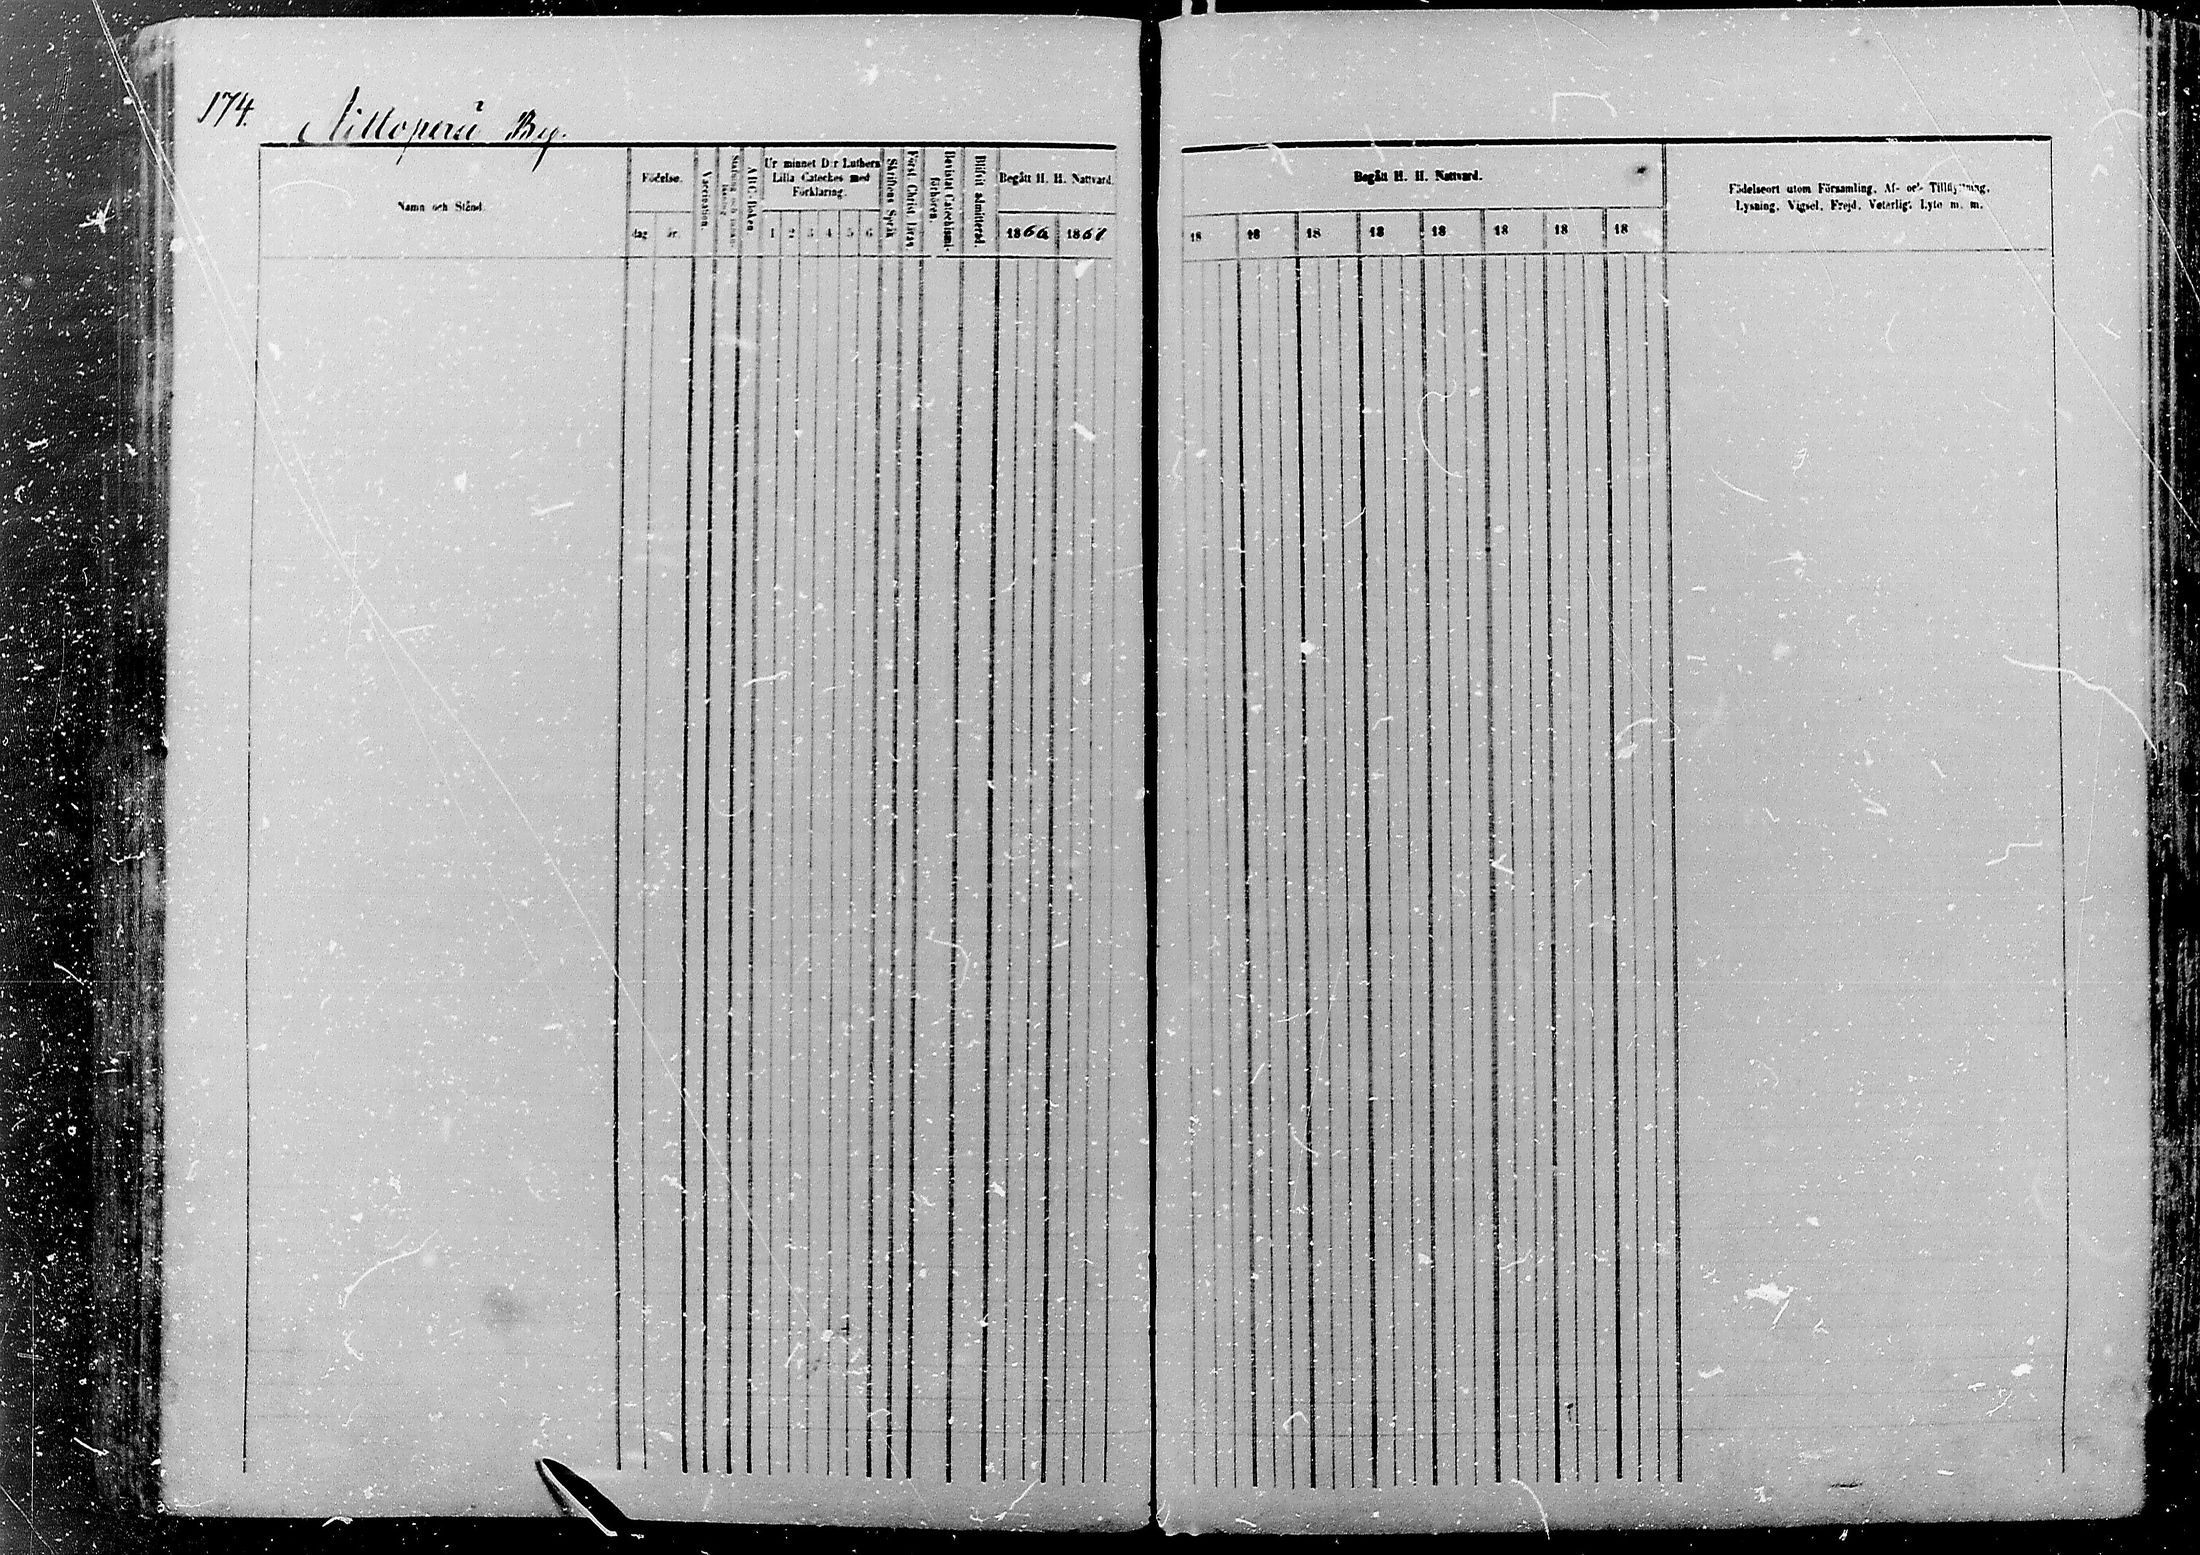 174.
Nittoperä By.
Namn och Stånd.
Födelse.
dag
år.
Vaccination.
Stafning och innan-
läsning.
ABC-Boken.
Ur minnet D:r Luthers
Lilla Cateches med
Förklaring.
1 2 3 4 5 6
Skriftens Språk
Först. Christ. Lära
Bevistat Catechismi-
förhören.
Blifvit admitterad.
Begått H. H. Nattvard.
1860 1861
Begått H. H. Nattvard.
18 18 18 18 18 18 18 18
Födelseort utom Församling, Af- och Tillflyttning,
Lysning, Vigsel, Frejd, Veterligt Lyte m. m.